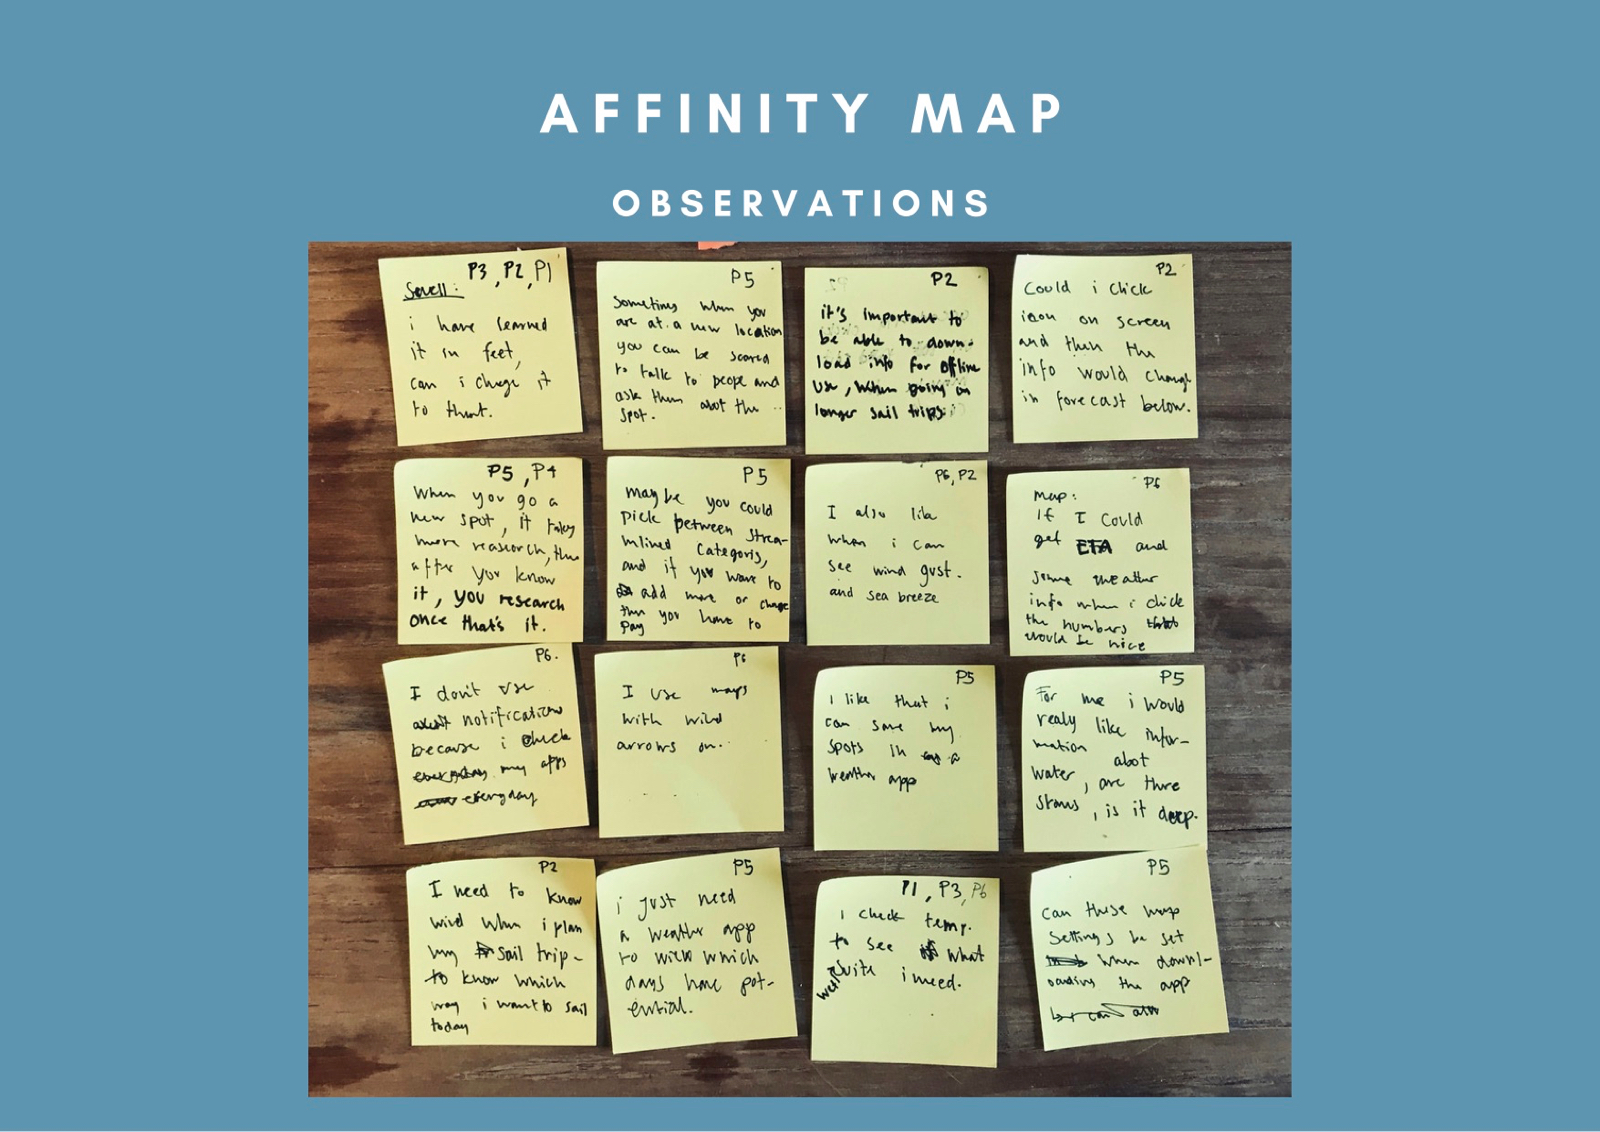 AFFINITY MAP
OBSERVATIONS
P3, P2, P1
Swell:
i have learned
it in feet,
can i chage it
to that.
P5
Sometims when you
are at a new location
you can be scared
to talk to peope and
ask them abot the ..
spot.
P2
it's important to
be able to down-
load info for offline
use, when going on
longer sail trips.
P2
Could i click
icon on screen
and then the
info would change
in forecast below.
P5, P4
When you go a
new spot, it takes
more reaserch, then
after you know
it, you research
once that's it.
P5
maybe you could
pick between strea-
mlined Categoris,
and if you want to
add more or change
then you have to
pay
P6, P2
I also like
when i can
see wind gust.
and sea breeze
P6
Map:
If I Could
get ETA and
some weather
info when i click
the numbers
would be nice
P6.
I don't use
notifications
because i check
my apps
everyday
P6
I use maps
with wind
arrows on..
P5
I like that i
can save my
spots in a
weather app
P5
For me i would
realy like infor-
mation abot
water, are there
stones, is it deep.
P2
I need to know
wind when i plan
my sail trip -
to know which
way i want to sail
today
P5
i just need
a weather app
to which
days have pot-
ential.
P1, P3, P6
I check temp.
to see what
wetsuite i need.
P5
can these map
settings be set
when downl-
oading the app